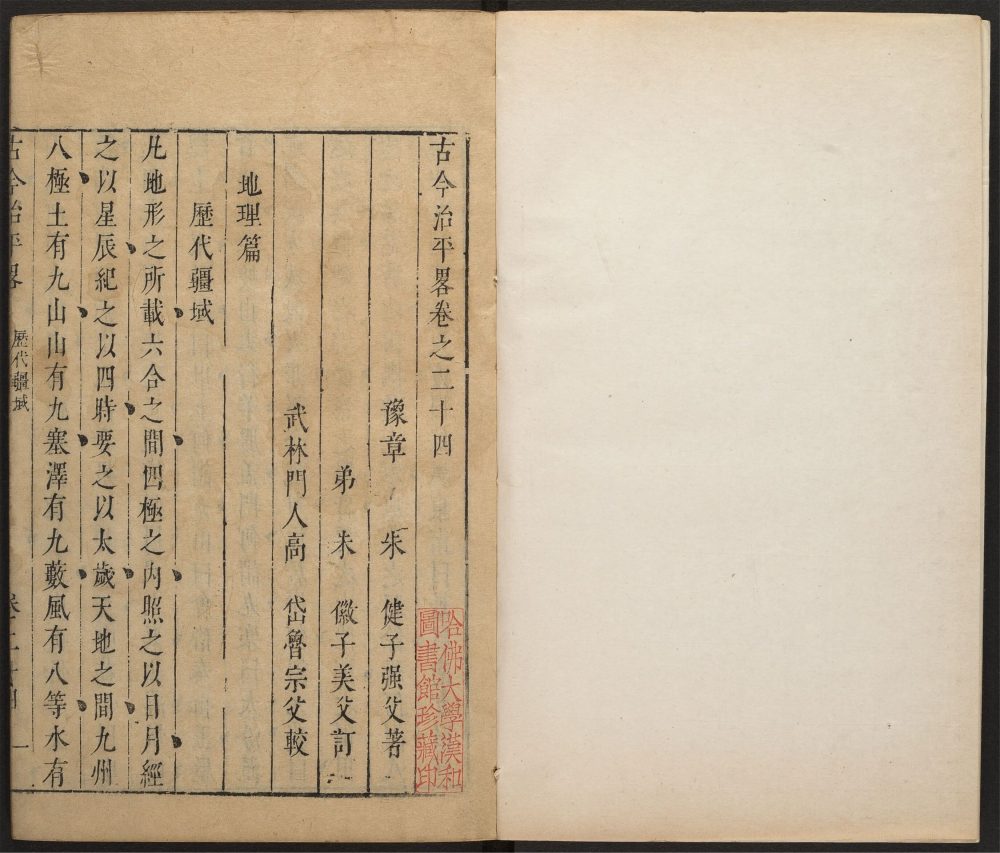 古今治平畧卷之二十四
豫章 朱 健子强父著
弟 朱 徽子美父訂
武林門人高 岱魯宗父較
地理篇
歷代疆域
凡地形之所載六合之間四極之内照之以日月經
之以星辰紀之以四時要之以太歲天地之間九州
八極土有九山山有九塞澤有九藪風有八等水有
古今治平畧 歷代疆域 卷二十四 一
哈佛大學漢和
圖書館珍藏印